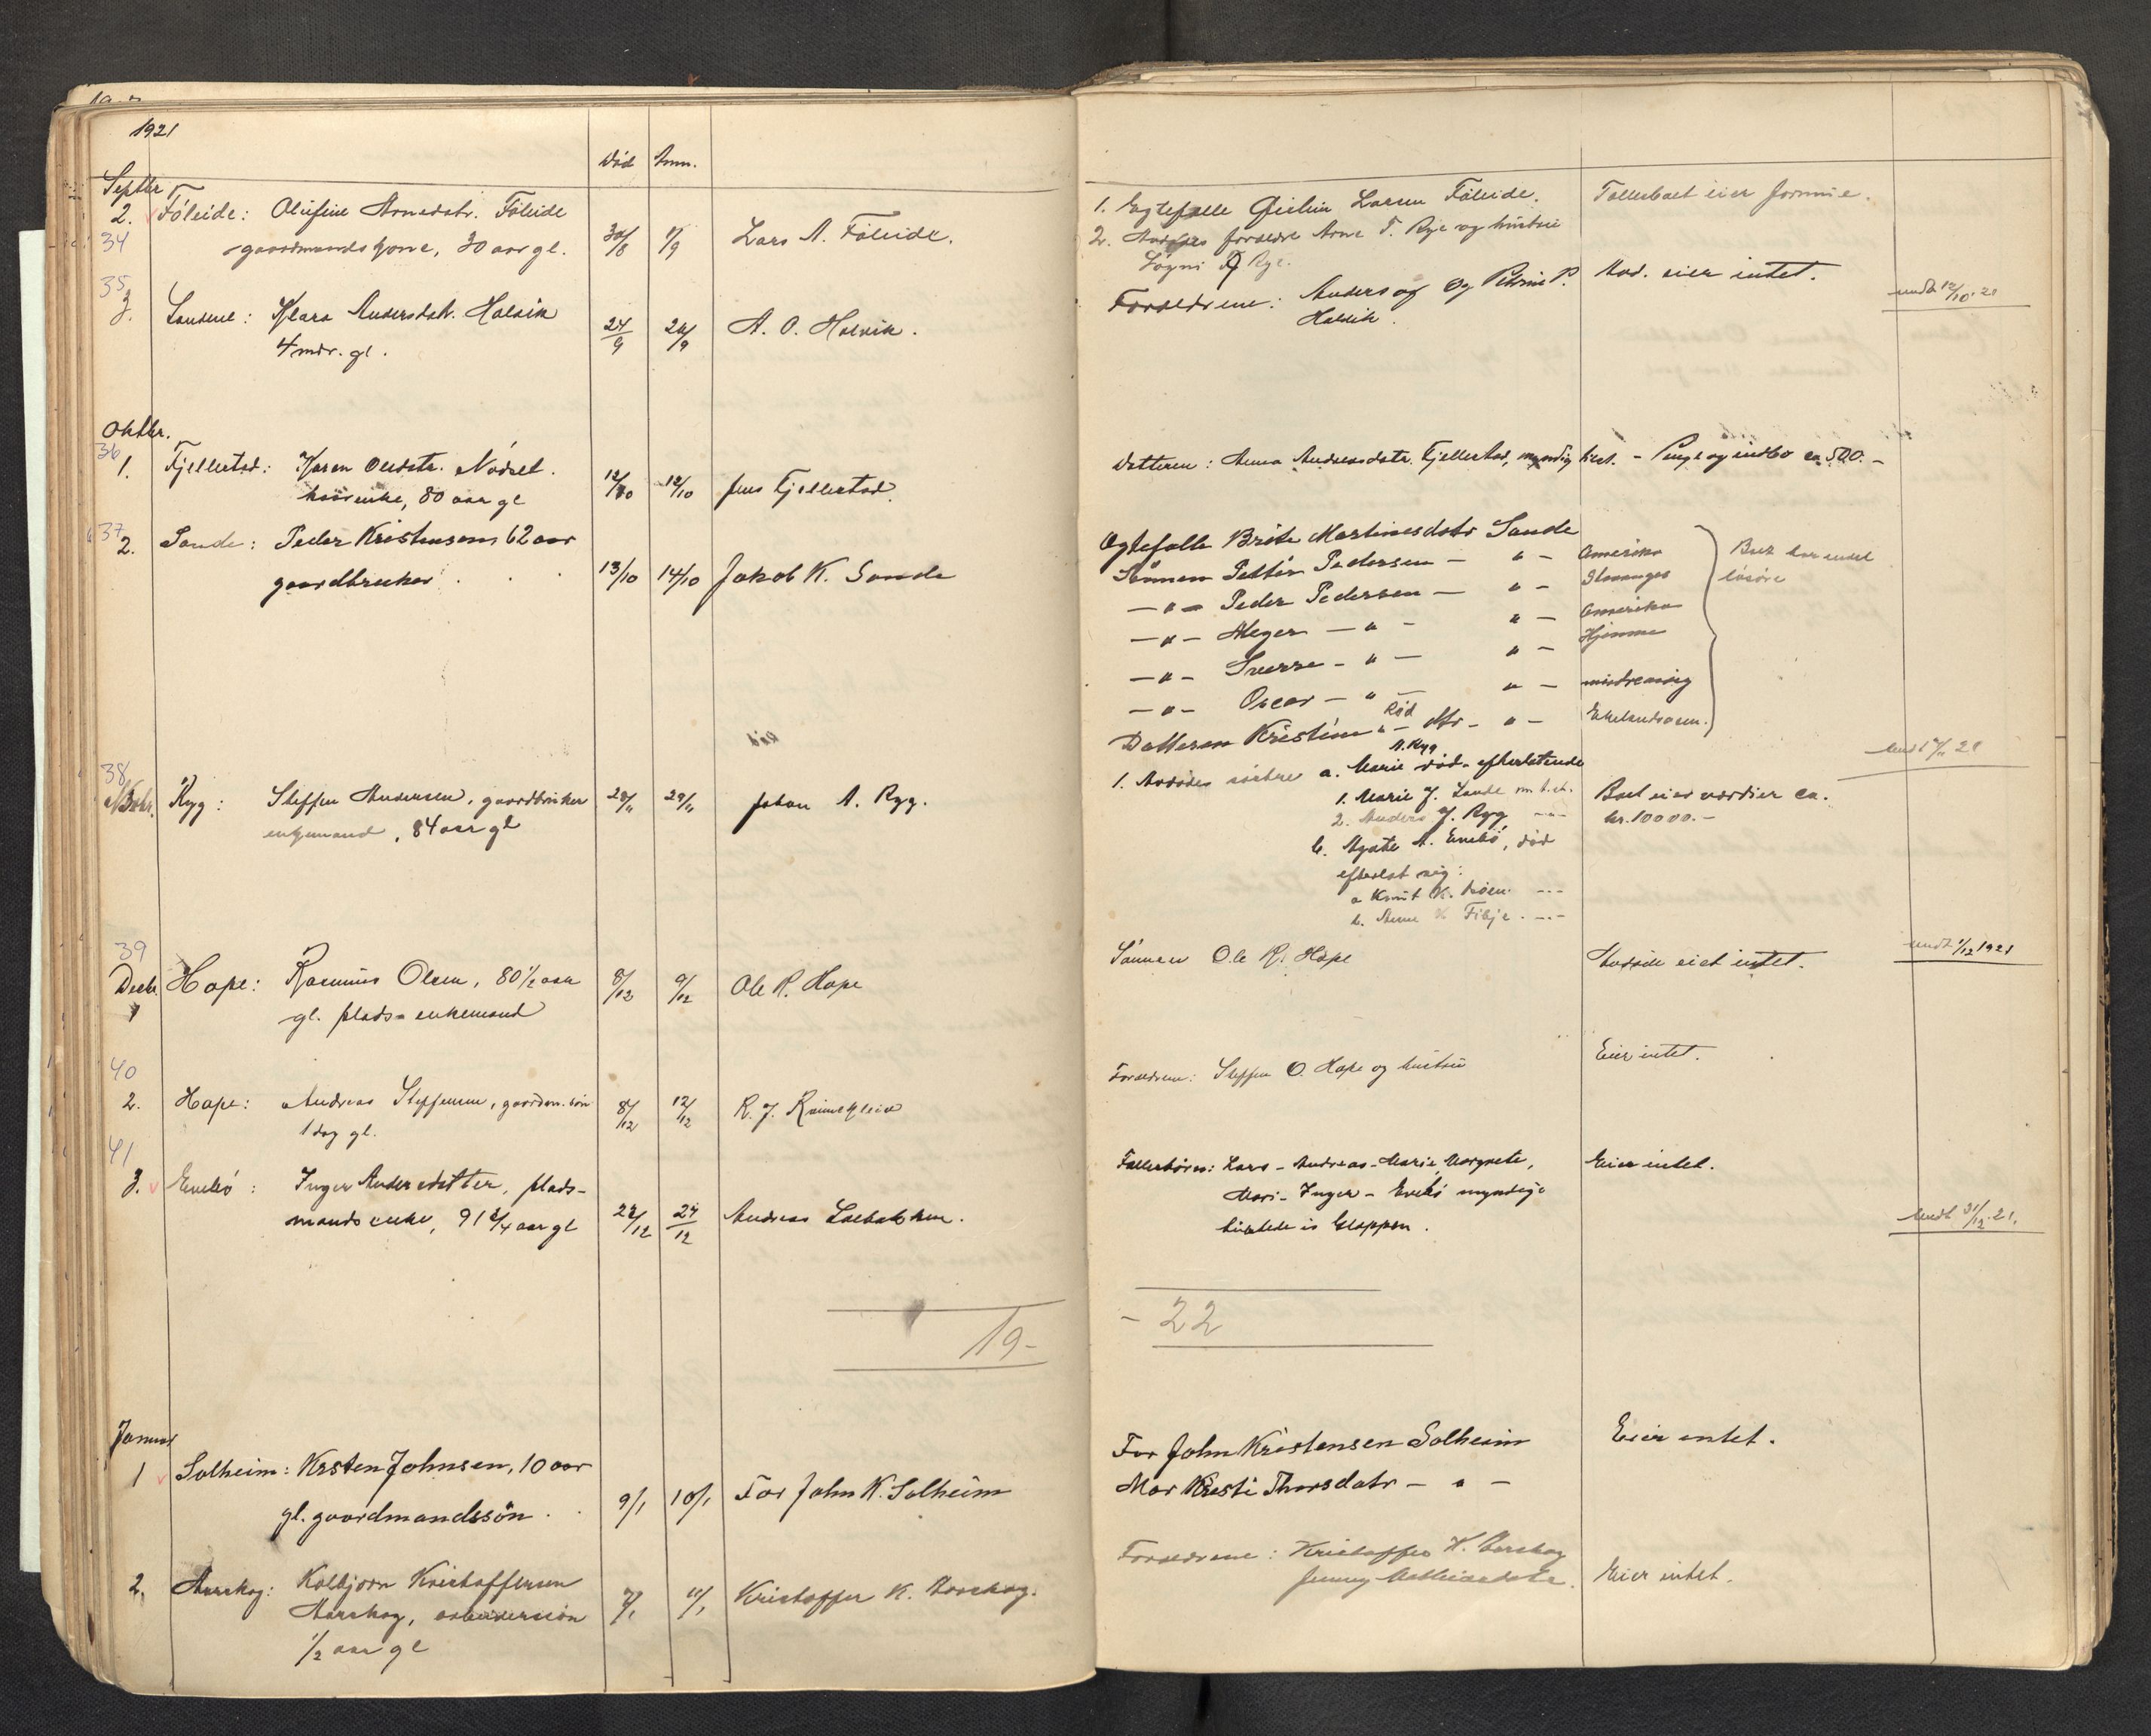 1921
Død Anm.
Septbr
2. Föleide: Olufine Arnedatr. Föleide
34
gaardmands kone, 30 aar gl. 30/8 1/9 Lars A. Föleide.
1. Egtefælle Gustin Larsen Föleide.
2. Avdødes foreldre Arne T. Rye og hustru
Sögni Rye.
Fællesboet eier formue.
35
3. Sandene: Klara Andersdatr. Holvik
4 mdr. gl. 24/9 26/9 A. O. Holvik.
Foreldrene: Anders og Petrine P.
Holvik.
Avd. eier intet.
anmdt 12/10.21
Oktbr.
36
1. Fjellestad: Karen Olsdtr. Nödset.
kaarenke, 80 aar gl 12/10 12/10 Jens Fjellestad.
Datteren: Anna Andreasdatr. Fjellestad, myndig - Penge og indbo ca 500.-
37
2. Sande: Peder Kristensen 62 aar
gaardbruker 13/10 14/10 Jakob K. Sande
Egtefælle Brite Martinesdatr Sande
Sønnen Petter Pedersen — " — Amerika
—"— Peder Pedersen — " — Stavanger
—"— Meger —"— " — Amerika
—"— Sverre —"— " — Hjemme
—"— Oscar —"— " — mindreaarig
Datteren Kristine "— dtr — " — Eikelandsosen.
Boet har endel
løsøre
Anmdt 17/11 21
38
Novbr. Ryg: Steffen Andersen, gaardbruker
enkemand, 84 aar gl 28/11 29/11 Johan A. Ryg.
1. Avdödes söstre a. Marie A. Ryg död. efterlatende
1. Marie J. Sande
2. Anders J. Ryg —"—
b. Agate A. Enebö, död
efterlat sig:
a Knut K. —"—
b. Anne K Fitje. —"—
Boet eier værdier ca.
kr. 10000.-
anmdt 1/12 1921
39
Decbr.
1 Hope: Rasmus Olsen, 80½ aar
gl. plads-enkemand 8/12 9/12 Ole R. Hope
Sönnen Ole R. Hope
Avdøde eier intet.
40
2. Hope: Andreas Steffensen, gaardm. sön
1 dag gl. 8/12 12/12 R. J.
Foreldrene: Steffen O. Hope og hustru
Eier intet.
41
3. Enebö: Inger Andersdatter, plads-
mands enke, 91 3/4 aar gl 22/12 24/12 Andreas
Fællesbörn: Lars - Andreas - Marie, Margrete,
Mari - Inger - Enebö myndige
bosatte i Gloppen.
Eier intet.
Anmdt 31/12.21.
19-
- 22
Januar
1 Solheim: Kristen Johnsen, 10 aar
gl. gaardmandssön. 9/1 10/1 Far John K. Solheim
Far John Kristensen Solheim
Mor Kristi Thorsdatr — " —
Eier intet.
2. Aarskog: Kolbjörn Kristoffersen
Aarskog, arbeidersön
1/2 aar gl 7/1 11/1 Kristoffer K. Aarskog.
Foreldrene: Kristoffer K. Aarskog
Jenny
Eier intet.